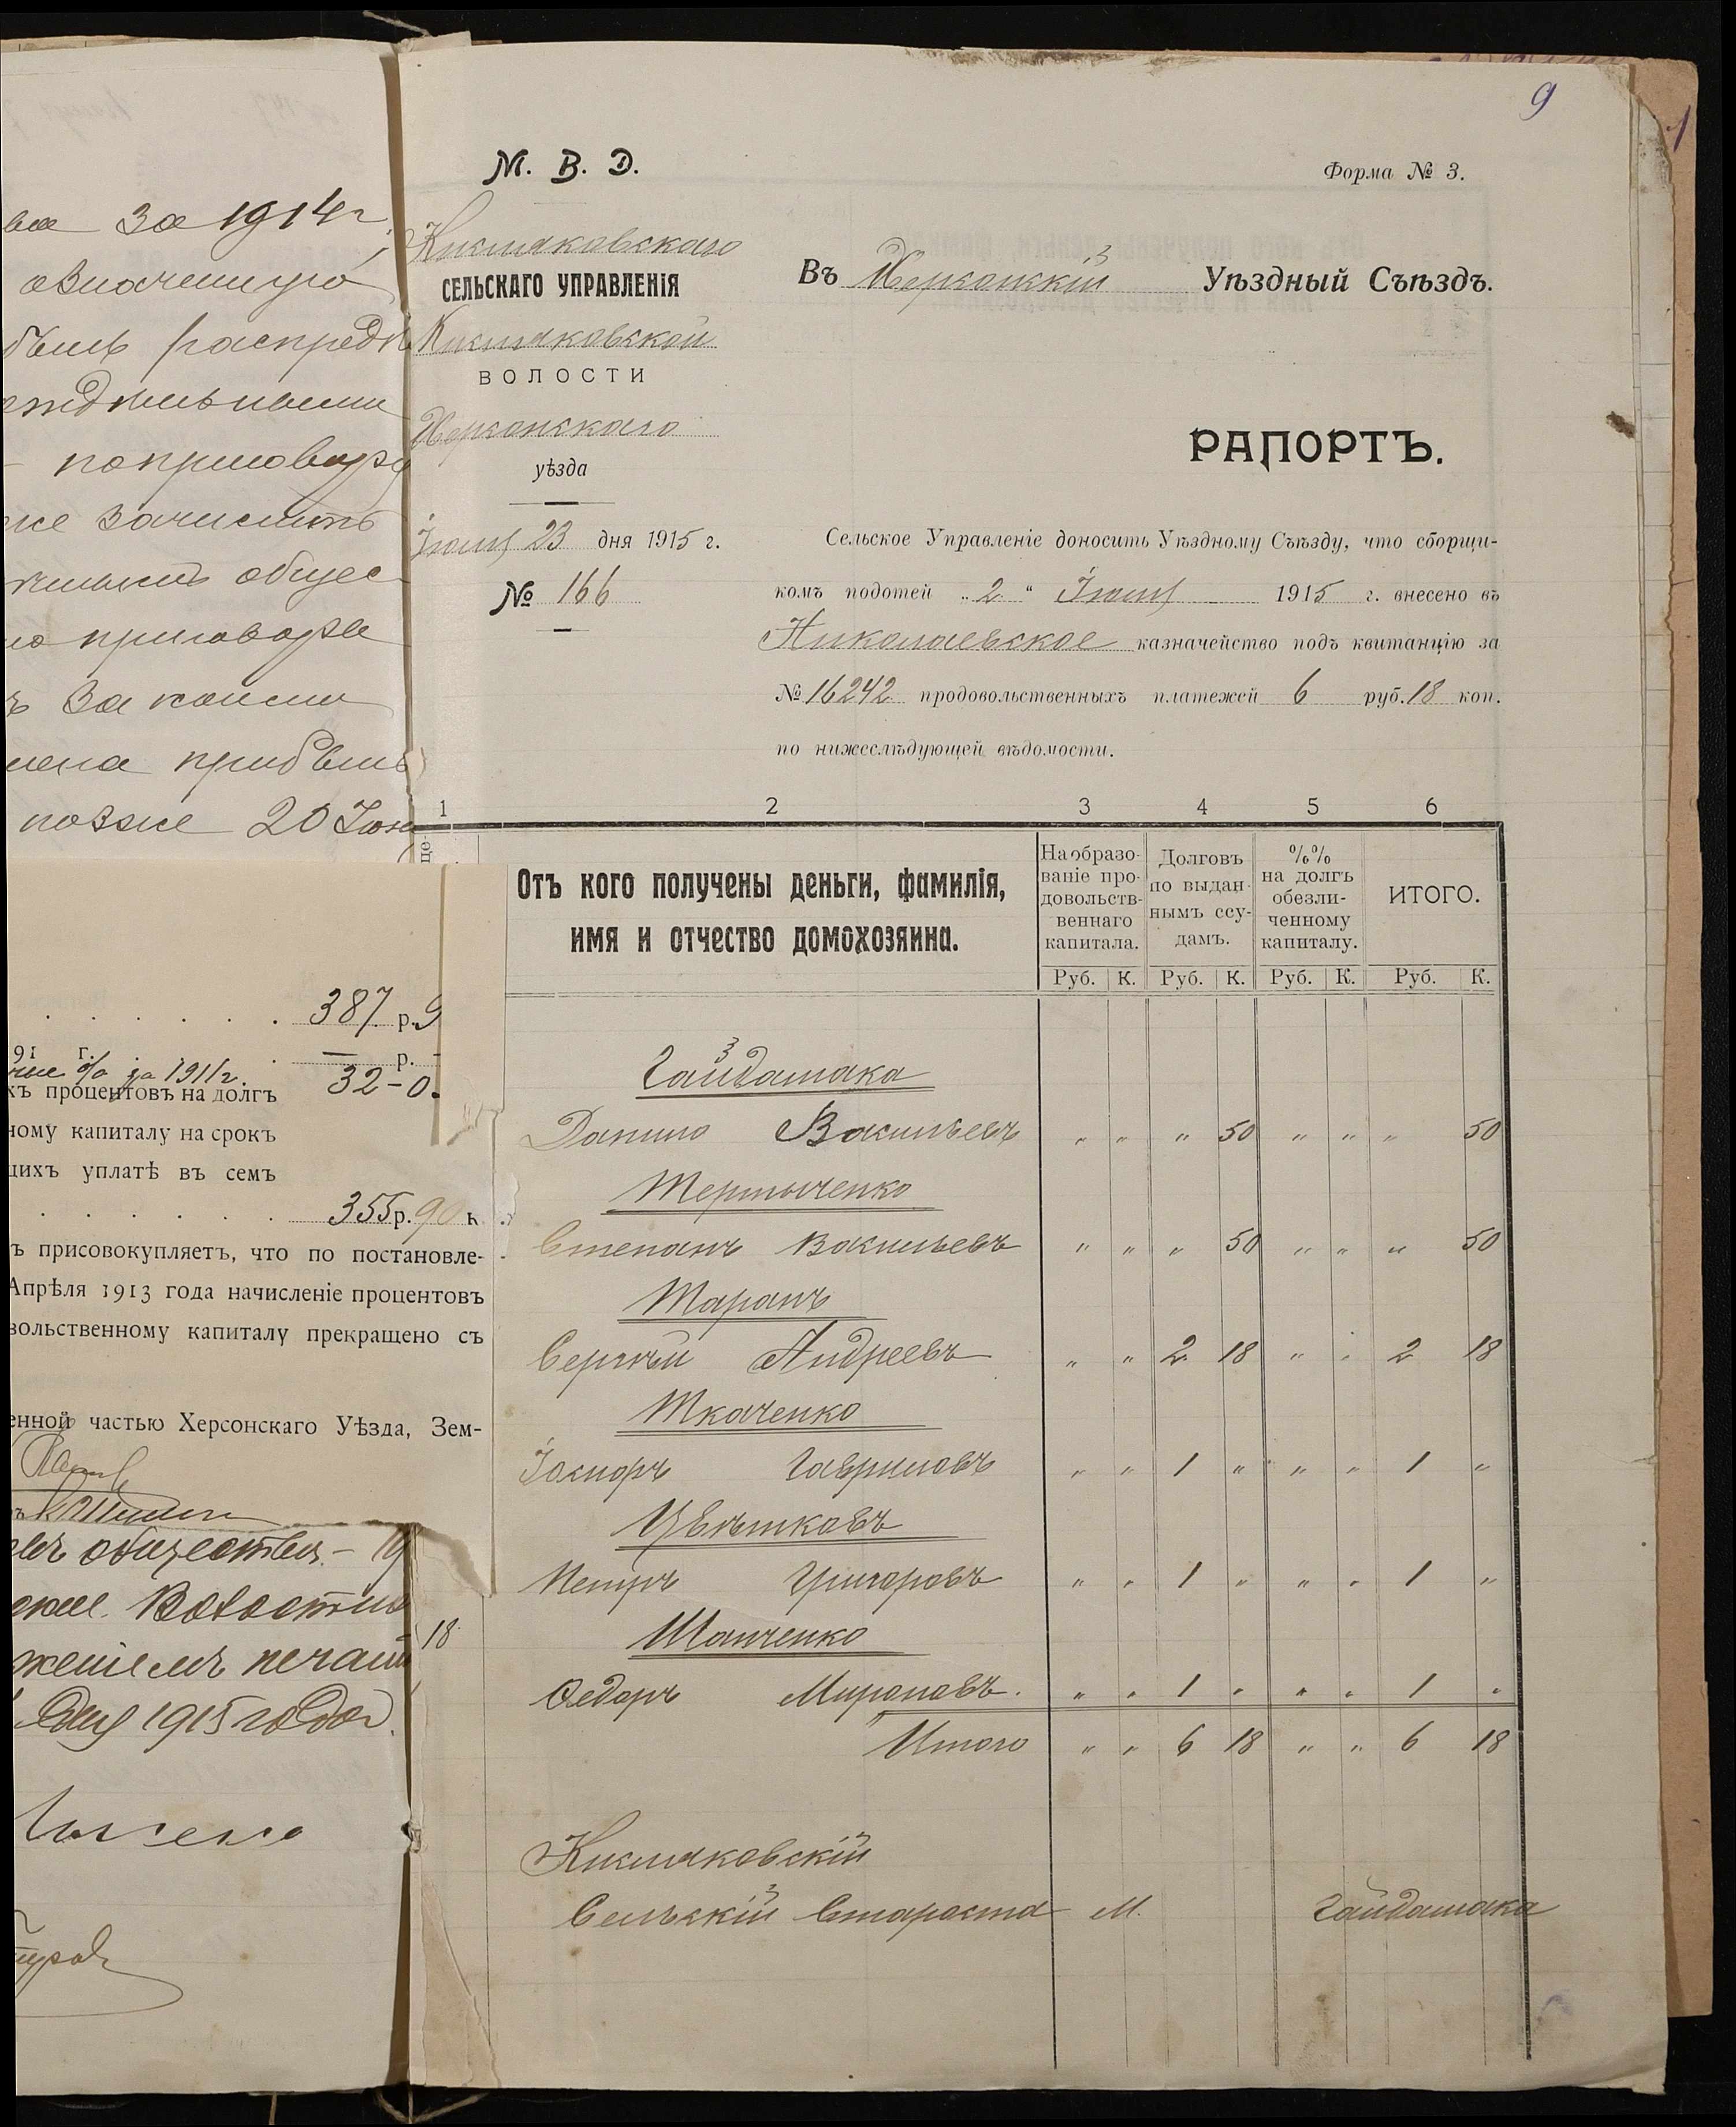 9
М. В. Д.
Форма № 3.
Кисляковскаго
СЕЛЬСКАГО УПРАВЛЕНІЯ
Кисляковской
ВОЛОСТИ
Херсонскаго
уѣзда
Іюля 23 дня 1915 г.
№ 166
Въ Херсонскій Уѣздный Съѣздъ.
РАПОРТЪ.
Сельское Управленіе доноситъ Уѣздному Съѣзду, что сборщи-
комъ подотей „ 2 “ Іюля 1915 г. внесено въ
Николаевское казначейство подъ квитанцію за
№ 16242 продовольственныхъ платежей 6 руб. 18 коп.
по нижеслѣдующей вѣдомости.
1 2 3 4 5 6
Отъ кого получены деньги, фамилія,
имя и отчество домохозяина.
На образо-
ваніе про-
довольств-
веннаго
капитала.
Долговъ
по выдан-
нымъ ссу-
дамъ.
%%
на долгъ
обезли-
ченному
капиталу.
ИТОГО.
Руб. К. Руб. К. Руб. К. Руб. К.
Гайдамака
Данило Васильевъ „ „ „ 50 „ „ „ 50
Тертыченко
Степанъ Васильевъ „ „ „ 50 „ „ „ 50
Таранъ
Сергѣй Андреевъ „ „ 2 18 „ „ 2 18
Ткаченко
Гавриловъ „ „ 1 „ „ „ 1 „
Цвѣтковъ
Петръ Григоровъ „ „ 1 „ „ „ 1 „
18
Шанченко
Федоръ Мироновъ. „ „ 1 „ „ „ 1 „
Итого „ „ 6 18 „ „ 6 18
Кисляковскій
Сельскій Староста М. Гайдамака
за 1914 г
распредѣ
по приговору
зачислить
общес
приговоръ
законом
прибыль
позже 20 Іюн
387 р. 9
91 г. — р. -
% за 1911 г. 32 - 0
хъ процентовъ на долгъ
ному капиталу на срокъ
щихъ уплатѣ въ семъ
355 р. 90 к.
ъ присовокупляетъ, что по постановле-
Апрѣля 1913 года начисленіе процентовъ
вольственному капиталу прекращено съ
енной частью Херсонскаго Уѣзда, Зем-
общества. -
Волостно
женіемъ печати
дня 1915 года.